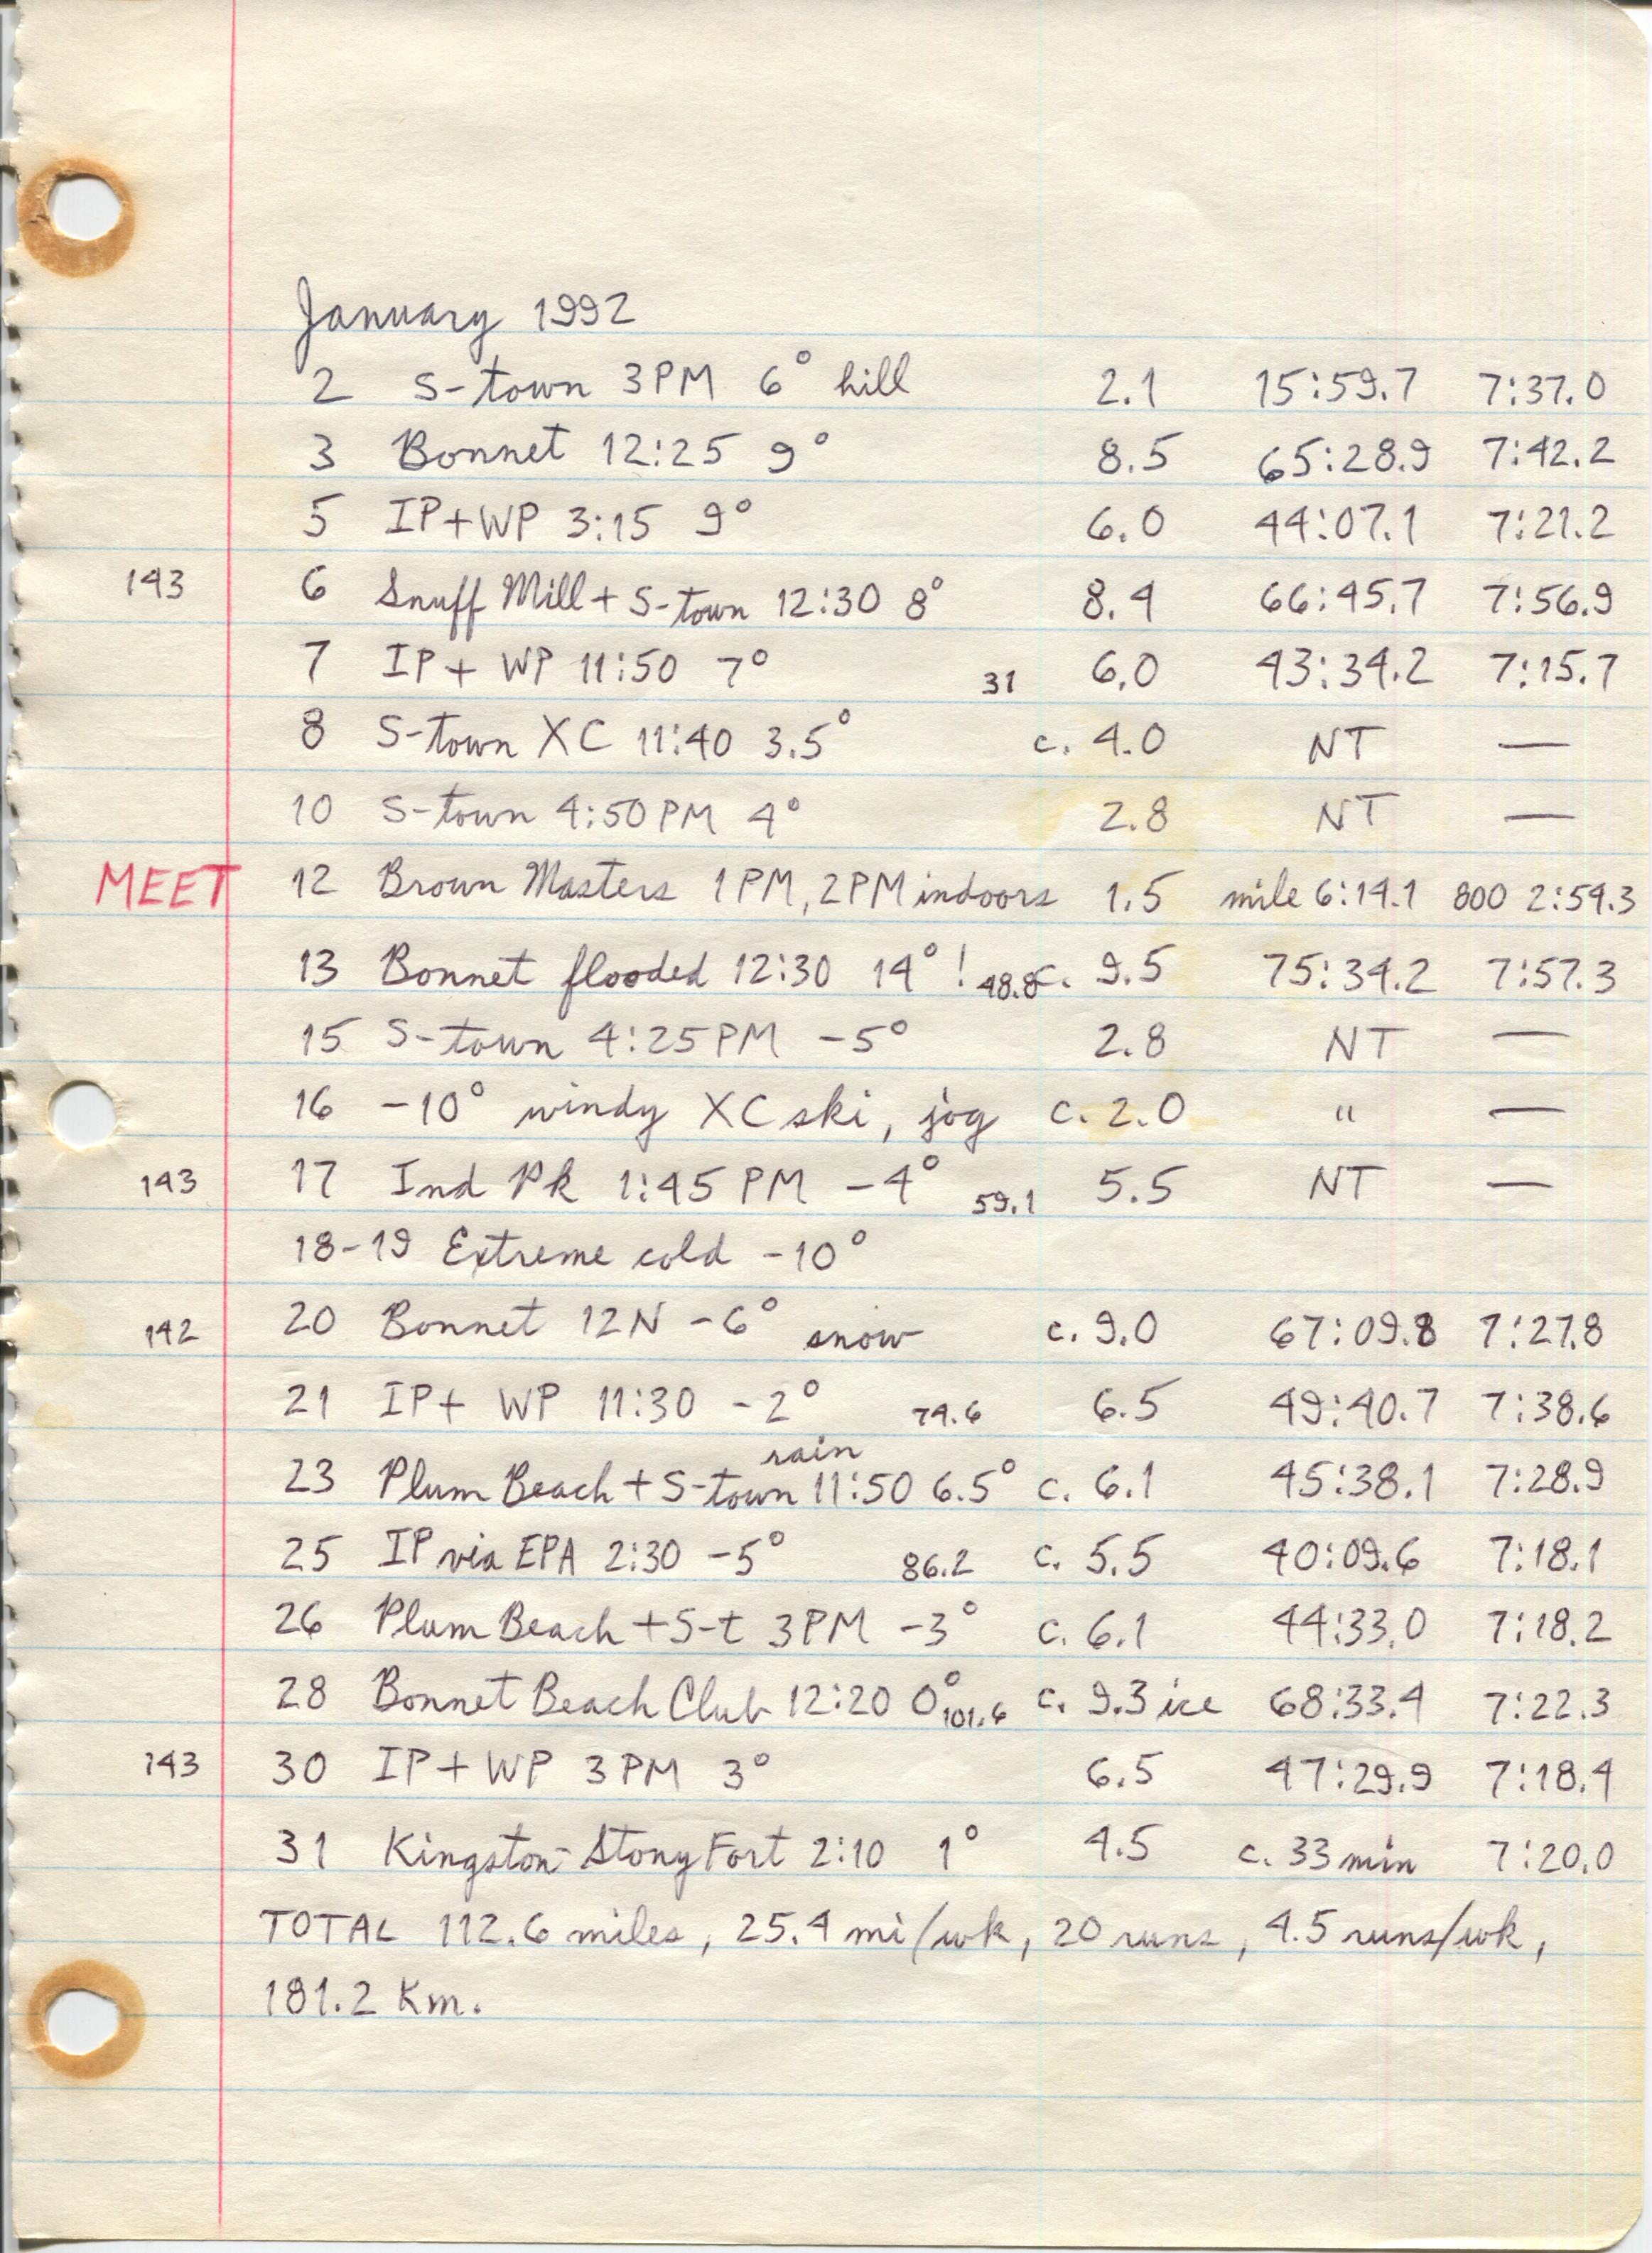 January 1992
2 S-town 3PM 6° hill 2.1 15:59.7 7:37.0
3 Bonnet 12:25 9° 8.5 65:28.9 7:42.2
5 IP+WP 3:15 9° 6.0 44:07.1 7:21.2
143 6 Snuff Mill + S-town 12:30 8° 8.4 66:45.7 7:56.9
7 IP+ WP 11:50 7° 31 6.0 43:34.2 7:15.7
8 S-town XC 11:40 3.5° c. 4.0 NT —
10 S-town 4:50 PM 4° 2.8 NT —
MEET 12 Brown Masters 1PM, 2PM indoors 1.5 mile 6:14.1 800 2:54.3
13 Bonnet flooded 12:30 14° ! 48.8 c. 9.5 75:34.2 7:57.3
15 S-town 4:25 PM -5° 2.8 NT —
16 -10° windy XC ski, jog c. 2.0 " —
143 17 Ind Pk 1:45 PM -4° 59.1 5.5 NT —
18-19 Extreme cold -10°
142 20 Bonnet 12N -6° snow c. 9.0 67:09.8 7:27.8
21 IP+ WP 11:30 -2° 74.6 6.5 49:40.7 7:38.6
rain
23 Plum Beach + S-town 11:50 6.5° c. 6.1 45:38.1 7:28.9
25 IP via EPA 2:30 -5° 86.2 c. 5.5 40:09.6 7:18.1
26 Plum Beach + S-t 3PM -3° c. 6.1 44:33.0 7:18.2
28 Bonnet Beach Club 12:20 0° 101.6 c. 9.3 ice 68:33.4 7:22.3
143 30 IP+WP 3PM 3° 6.5 47:29.9 7:18.4
31 Kingston-Stony Fort 2:10 1° 4.5 c. 33 min 7:20.0
TOTAL 112.6 miles, 25.4 mi/wk, 20 runs, 4.5 runs/wk,
181.2 Km.